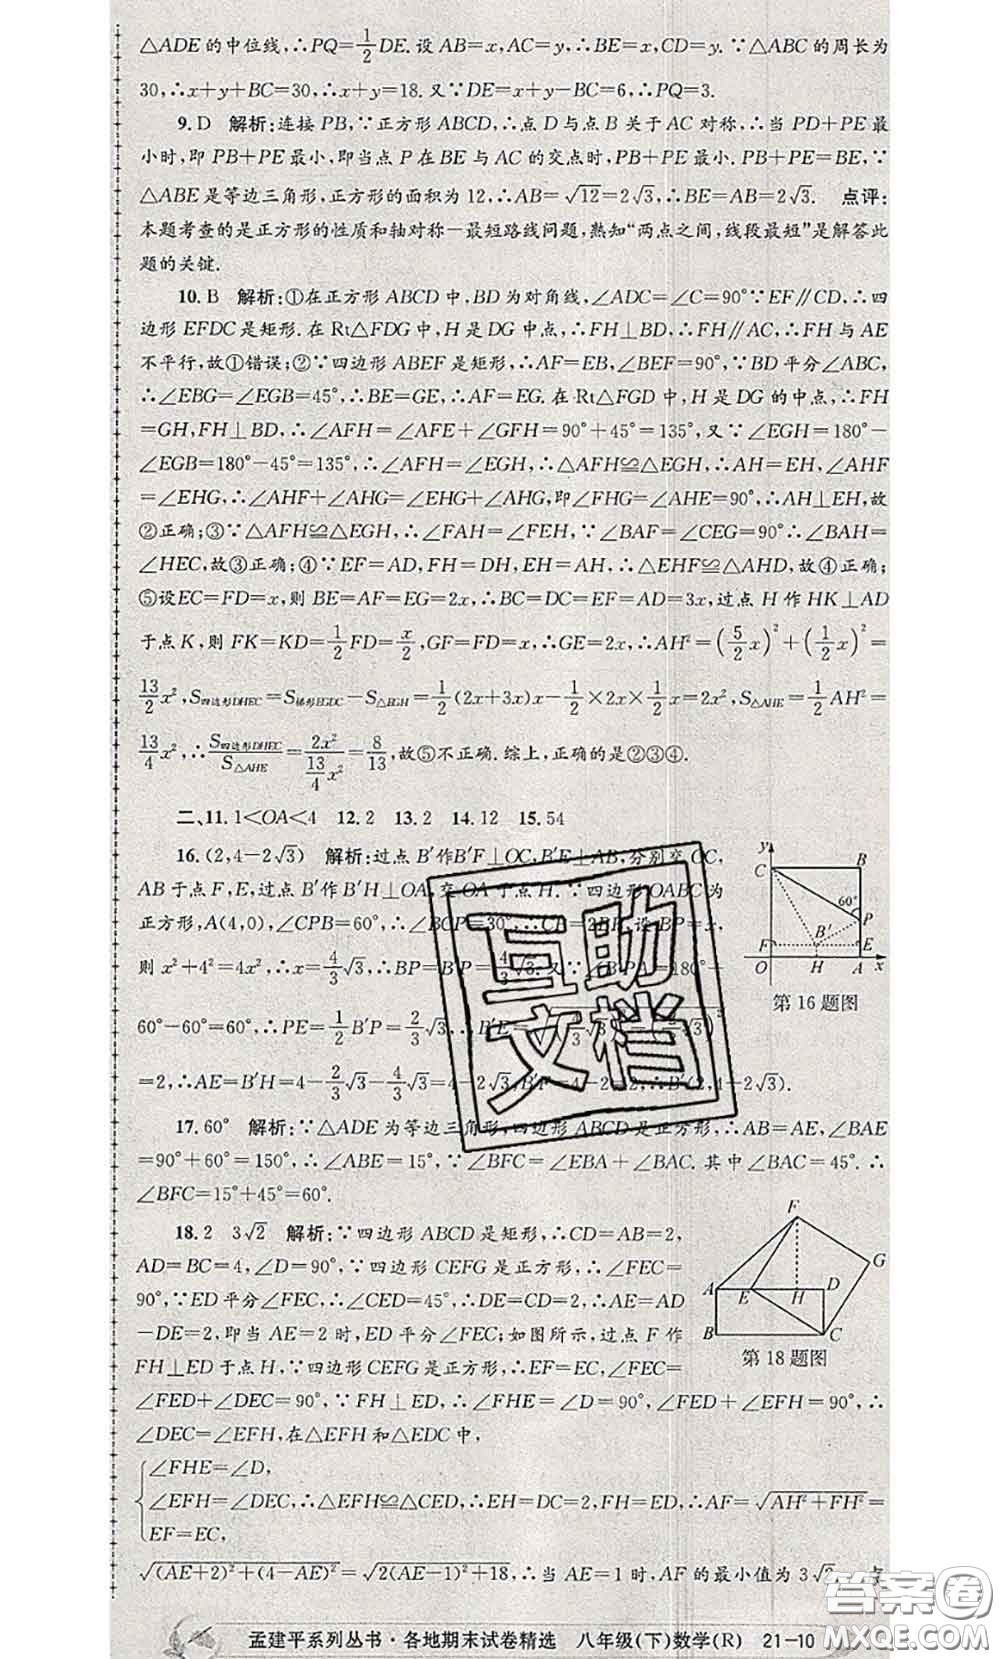 △ADE的中位线,∴PQ=1/2DE.设AB=x,AC=y,∴BE=x,CD=y.∵△ABC的周长为
30,∴x+y+BC=30,∴x+y=18.又∵DE=x+y-BC=6,∴PQ=3.
9.D 解析:连接PB,∵正方形ABCD,∴点D与点B关于AC对称,∴当PD+PE最
小时,即PB+PE最小,即当点P在BE与AC的交点时,PB+PE最小.PB+PE=BE,∵
△ABE是等边三角形,正方形的面积为12,∴AB=√12=2√3,∴BE=AB=2√3. 点评:
本题考查的是正方形的性质和轴对称—最短路线问题,熟知“两点之间,线段最短”是解答此
题的关键.
10.B 解析:①在正方形ABCD中,BD为对角线,∠ADC=∠C=90°∵EF∥CD,∴四
边形EFDC是矩形.在Rt△FDG中,H是DG中点,∴FH⊥BD,∴FH∥AC,∴FH与AE
不平行,故①错误;②∵四边形ABEF是矩形,∴AF=EB,∠BEF=90°,∵BD平分∠ABC,
∴∠EBG=∠EGB=45°,∴BE=GE,∴AF=EG.在Rt△FGD中,H是DG的中点,∴FH
=GH,FH⊥BD,∴∠AFH=∠AFE+∠GFH=90°+45°=135°,又∵∠EGH=180°-
∠EGB=180°-45°=135°,∴∠AFH=∠EGH,∴△AFH≌△EGH,∴AH=EH,∠AHF
=∠EHG,∴∠AHF+∠AHG=∠EHG+∠AHG,即∠FHG=∠AHE=90°,∴AH⊥EH,故
②正确;③∵△AFH≌△EGH,∴∠FAH=∠FEH,∵∠BAF=∠CEG=90°∴∠BAH=
∠HEC,故③正确;④∵EF=AD,FH=DH,EH=AH,∴△EHF≌△AHD,故④正确;
⑤设EC=FD=x,则BE=AF=EG=2x,∴BC=DC=EF=AD=3x,过点H作HK⊥AD
于点K,则FK=KD=1/2FD=x/2,GF=FD=x,∴GE=2x,∴AH²=(5/2x)²+(1/2x)²=
13/2x²,S四边形DHEC=S梯形EGDC-S△EGH=1/2(2x+3x)x-1/2×2x×1/2x=2x²,S△AHE=1/2AH²=
13/4x²,∴S四边形DHEC/S△AHE=2x²/(13/4x²)=8/13,故⑤不正确.综上,正确的是②③④.
二、11.1<OA<4 12.2 13.2 14.12 15.54
16.(2,4-2√3) 解析:过点B′作B′F⊥OC,B′E⊥AB,分别交OC,
AB于点F,E,过点B′作B′H⊥OA,交OA于点H.∵四边形OABC为
正方形,A(4,0),∠CPB=60°,∴∠BCP=30°,∴CP=2BP.设BP=x,
则x²+4²=4x²,∴x=4/3√3,∴BP=B′P=4/3√3.又∵∠B′PA=180°-
60°-60°=60°,∴PE=1/2B′P=2/3√3
=2,∴AE=B′H=4-2/3√3-4/3√3=4-2√3,B′F=4-2=2,∴B′(2,4-2√3).
y
C
B
60°
P
F
B′
E
O
H
A
x
第16题图
17.60° 解析:∵△ADE为等边三角形,四边形ABCD是正方形,∴AB=AE,∠BAE
=90°+60°=150°,∴∠ABE=15°,∵∠BFC=∠EBA+∠BAC.其中∠BAC=45°.∴
∠BFC=15°+45°=60°.
18.2 3√2 解析:∵四边形ABCD是矩形,∴CD=AB=2,
AD=BC=4,∠D=90°,∵四边形CEFG是正方形,∴∠FEC=
90°,∵ED平分∠FEC,∴∠CED=45°,∴DE=CD=2,∴AE=AD
-DE=2,即当AE=2时,ED平分∠FEC;如图所示,过点F作
FH⊥ED于点H,∵四边形CEFG是正方形,∴EF=EC,∠FEC=
∠FED+∠DEC=90°,∵FH⊥ED,∴∠FHE=∠D=90°,∠FED+∠EFH=90°,∴
∠DEC=∠EFH,在△EFH和△EDC中,
F
G
A
E
H
D
B
C
第18题图
∠FHE=∠D,
∠EFH=∠DEC,∴△EFH≌△CED,∴EH=DC=2,FH=ED,∴AF=√(AH²+FH²)=
EF=EC,
√((AE+2)²+(4-AE)²)=√(2(AE-1)²+18),∴当AE=1时,AF的最小值为3√2. 点
孟建平系列丛书·各地期末试卷精选 八年级(下)数学(R) 21-10
互助
文档
答案卷